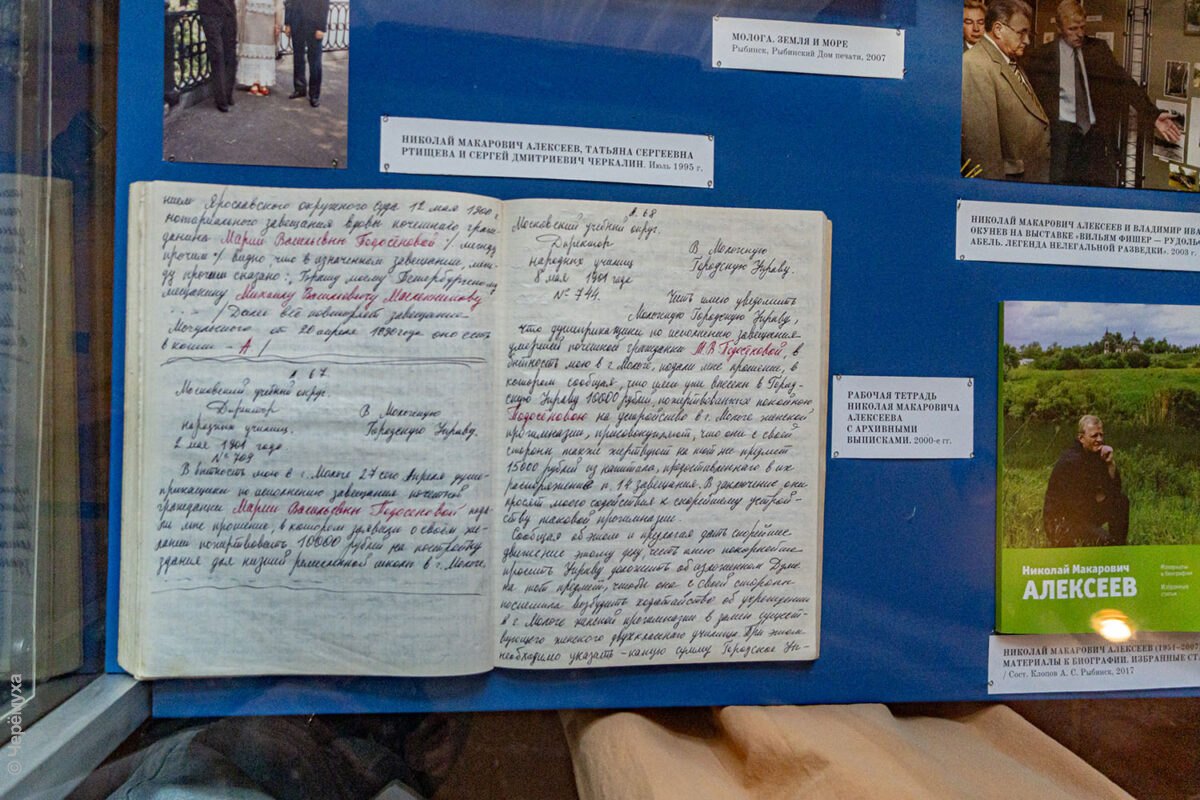 МОЛОГА. ЗЕМЛЯ И МОРЕ
Рыбинск, Рыбинский Дом печати, 2007
НИКОЛАЙ МАКАРОВИЧ АЛЕКСЕЕВ, ТАТЬЯНА СЕРГЕЕВНА
РТИЩЕВА И СЕРГЕЙ ДМИТРИЕВИЧ ЧЕРКАЛИН. Июль 1995 г.
НИКОЛАЙ МАКАРОВИЧ АЛЕКСЕЕВ И ВЛАДИМИР ИВА
ОКУНЕВ НА ВЫСТАВКЕ «ВИЛЬЯМ ФИШЕР — РУДОЛЬ
АБЕЛЬ. ЛЕГЕНДА НЕЛЕГАЛЬНОЙ РАЗВЕДКИ». 2003 г.
нием Ярославского окружного суда 12 мая 1900 г.
нотариального завещания вдовы почетнаго граж-
данина Марии Васильевны Подосёновой /. между
прочим /. видно что в означенном завещании, меж-
ду прочим сказано:, брату моему Петербургскому
мещанину Михаилу Васильевичу Масленникову
... / Далее всё повторяет завещание
от 20 апреля 1890 года оно есть
в копии - А /
л. 67
Московский учебный округ.
Директор
народных училищ.
В Моложскую
Городскую Управу.
2 мая 1901 года
№ 709
В бытность мою в г. Мологе 27 сего Апреля душе-
прикащики по исполнению завещания почетной
гражданки Марии Васильевны Подосёновой пода-
ли мне прошение, в котором заявили о своем же-
лании пожертвовать 10000 рублей на постройку
здания для низшей ремесленной школы в г. Мологе.
л. 68
Московский учебный округ.
Директор
народных училищ
8 мая 1901 года
№ 744.
В Моложскую
Городскую Управу.
Честь имею уведомить
Моложскую Городскую Управу,
что душеприкащики по исполнению завещания
умершей почетной гражданки М.В. Подосёновой, в
бытность мою в г. Мологе, подали мне прошение, в
котором сообщая, что ими уже внесены в Город-
скую Управу 10000 рублей, пожертвованных покойною
Подосёновою на устройство в г. Мологе женской
прогимназии, присовокупляют, что они с своей
стороны также жертвуют на тот же предмет
15000 рублей из капитала, предоставленного в их
распоряжение п. 14 завещания. В заключение они
просят моего содействия к скорейшему устрой-
ству таковой прогимназии.
Сообщая об этом и предлагая дать скорейшее
движение этому делу, честь имею покорнейше
просить Управу доложить об изложенном Думе
на тот предмет, чтобы она с своей стороны
поспешила возбудить ходатайство об учреждении
в г. Мологе женской прогимназии в замен сущест-
вующего женского двухклассного училища. При этом
необходимо указать - какую сумму Городское Уп-
РАБОЧАЯ ТЕТРАДЬ
НИКОЛАЯ МАКАРОВИЧА
АЛЕКСЕЕВА
С АРХИВНЫМИ
ВЫПИСКАМИ. 2000-е гг.
Николай Макарович
АЛЕКСЕЕВ
Материалы
к биографии
Избранные
статьи
НИКОЛАЙ МАКАРОВИЧ АЛЕКСЕЕВ (1951–2007
МАТЕРИАЛЫ К БИОГРАФИИ. ИЗБРАННЫЕ СТ
/ Сост. Клопов А. С. Рыбинск, 2017
© Черёмуха